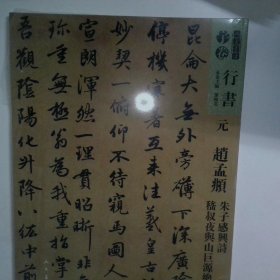 行書
元
趙孟頫
朱子感興詩
嵇叔夜與山巨源絕
崑崙大無外旁礴下深
停機寒暑互來往羲皇
妙契一俯仰不待窺馬圖人
宣朗渾然一理貫昭晰非
珍重無極翁為我重指掌
吾觀陰陽化升降八紘中